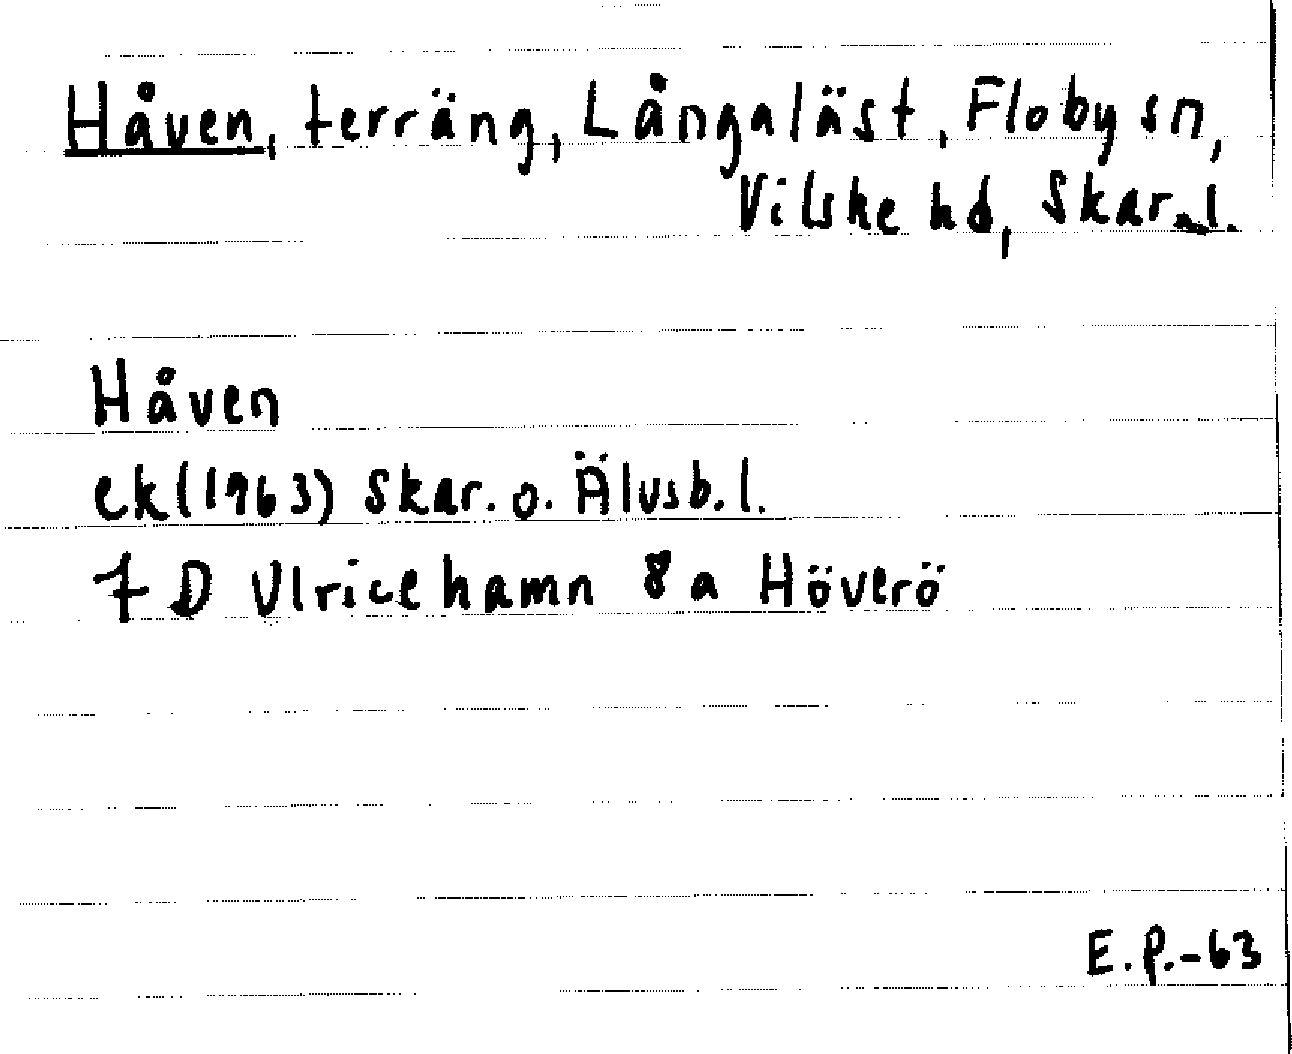 Håven, terräng, Långaläst, Floby sn,
Vilske hd, Skar. l.
Håven
ek (1963) Skar. o. Älvsb. l.
7 D Ulricehamn 8 a Höverö
E.P.-63